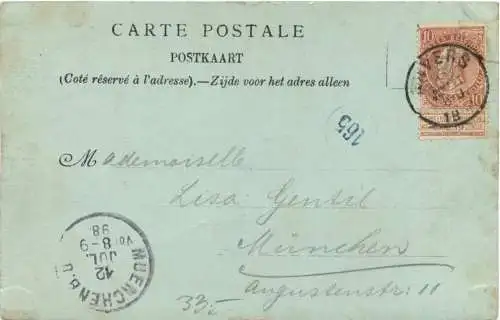 CARTE POSTALE
POSTKAART
(Coté réservé à l'adresse).—Zijde voor het adres alleen
10
10
ANVERS
18
165
Mademoiselle
Lisa Gentil
München
Augustenstr: 11
MUENCHEN B.P.
12
JUL.
Vor 8-9
98.
33:-